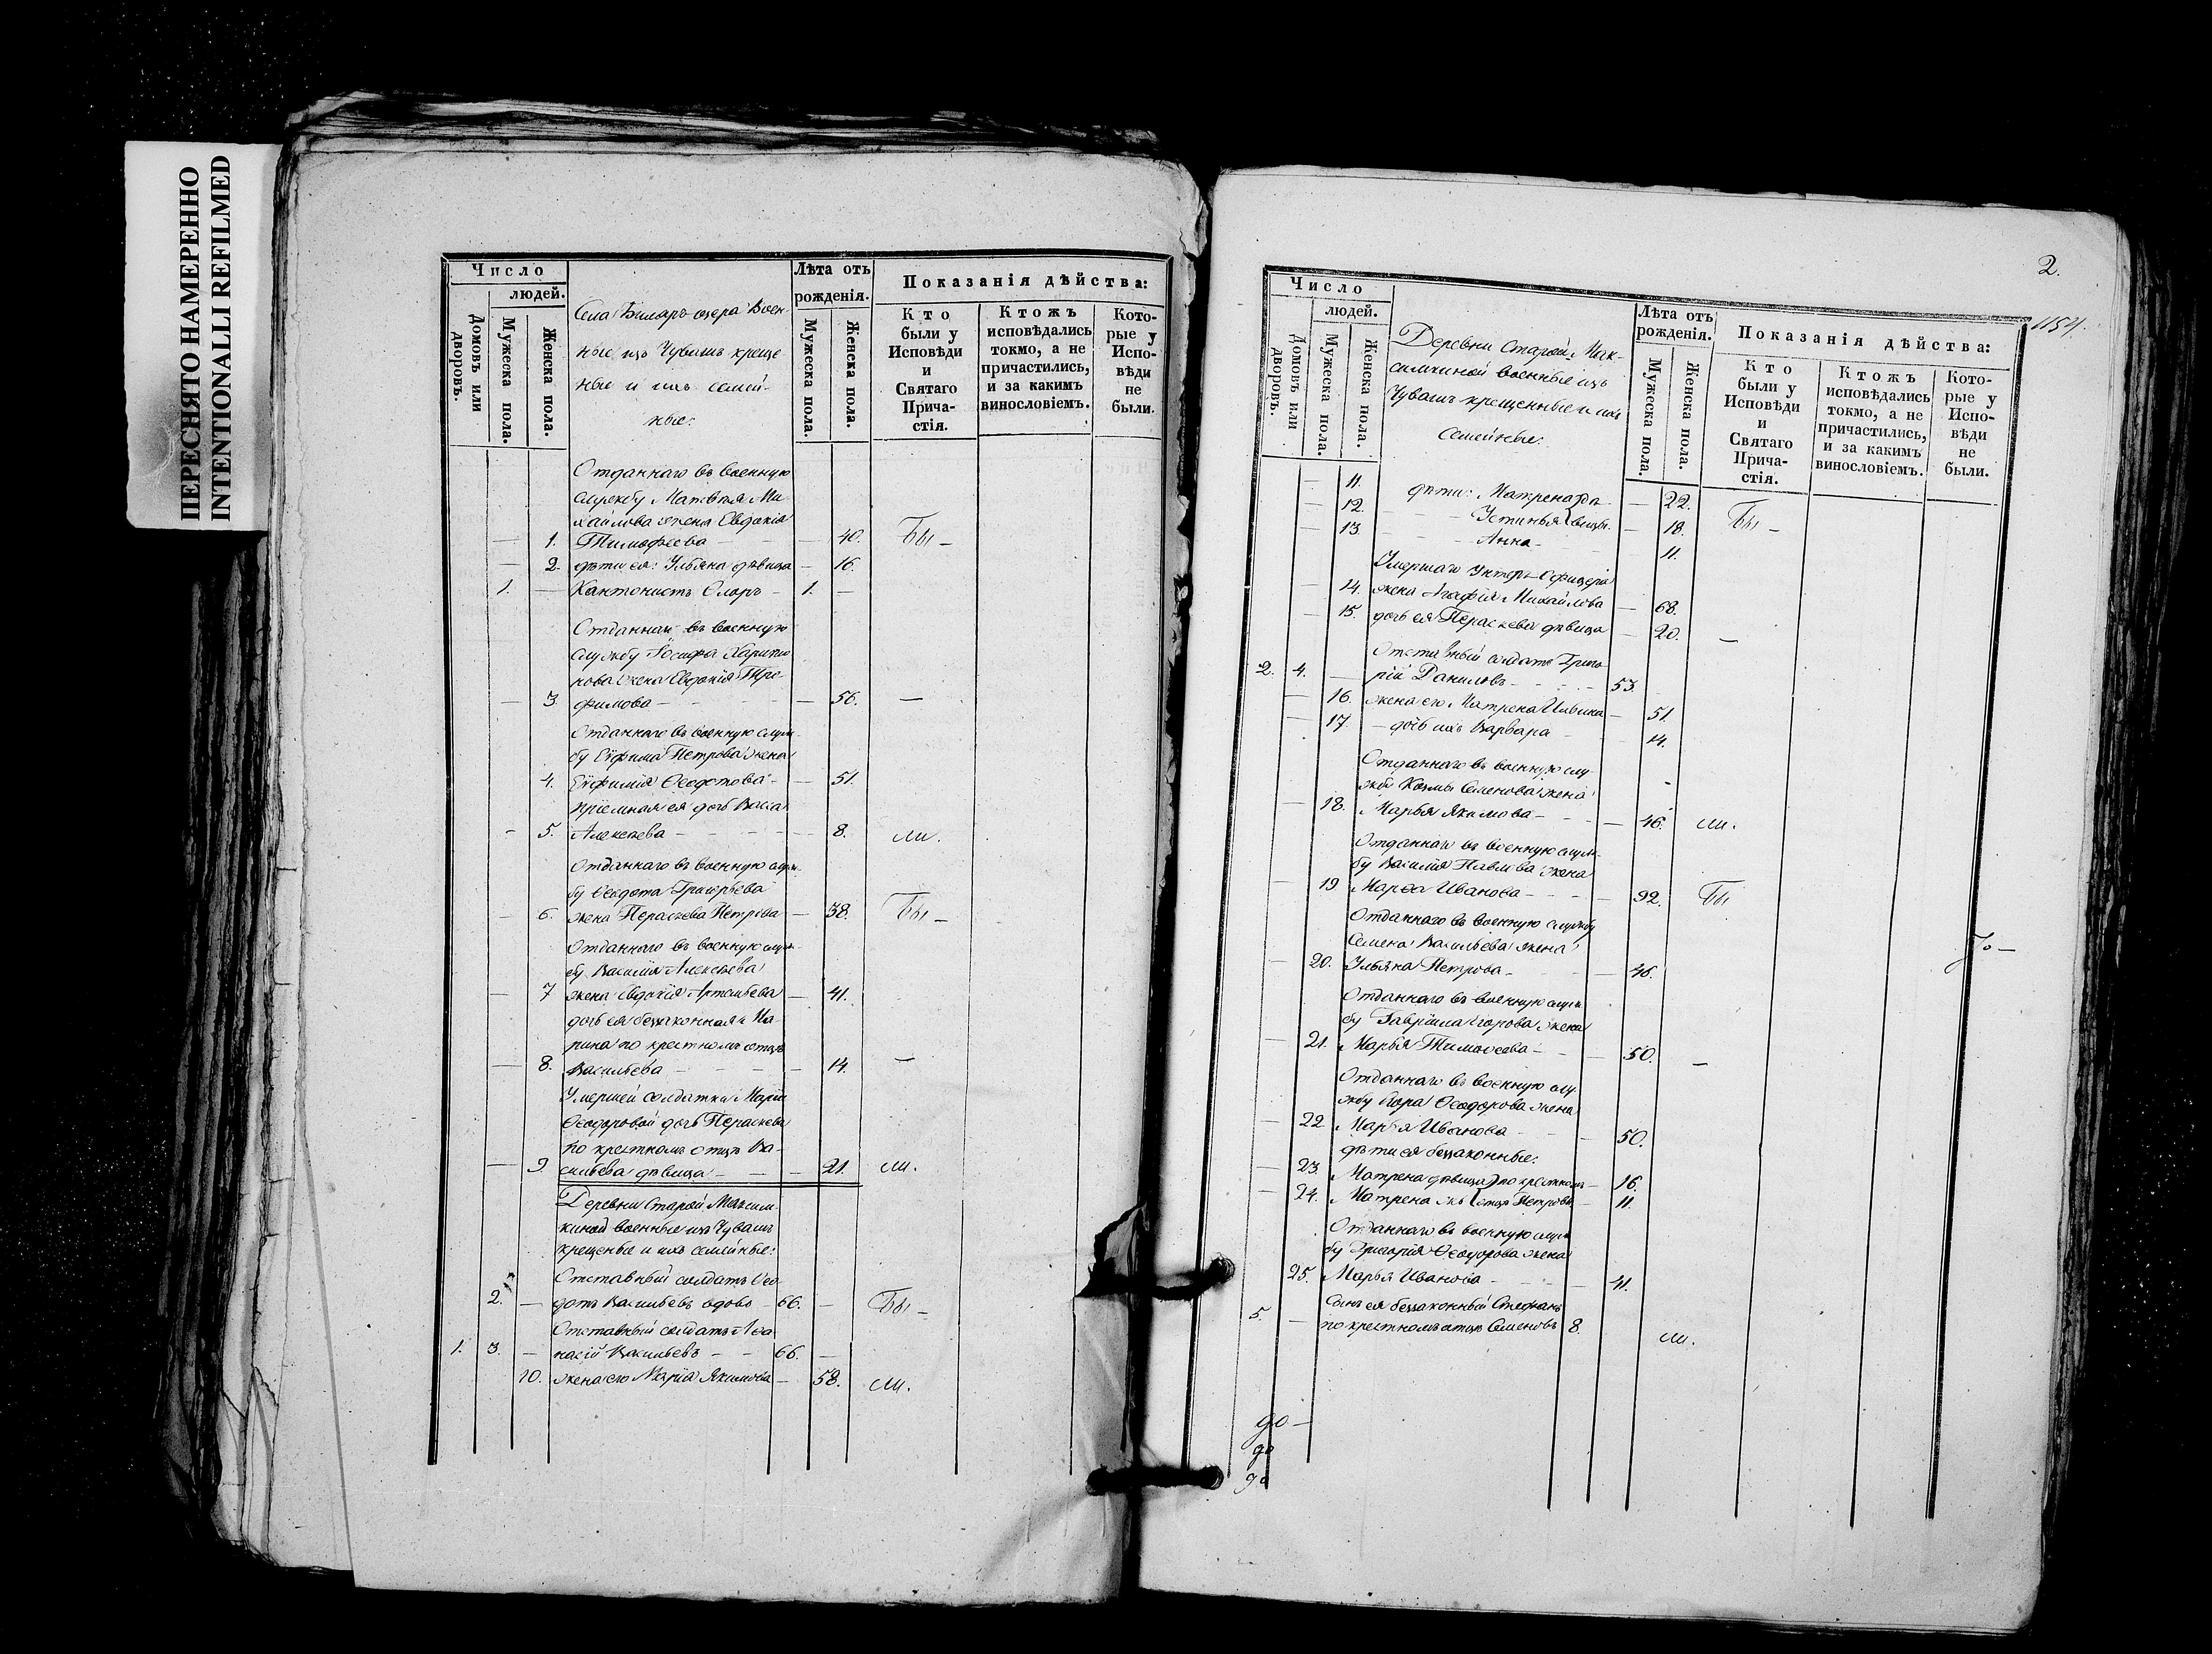 ПЕРЕСНЯТО НАМЕРЕННО
INTENTIONALLI REFILMED
Число
людей.
Домовъ или дворовъ.
Мужеска пола.
Женска пола.
Села Биляръ озера Воен-
ные изъ Чувашъ креще-
ные и ихъ семей-
ные:
Лѣта отъ
рожденія.
Мужеска пола.
Женска пола.
Показанія дѣйства:
Кто
были у
Исповѣди
и
Святаго
Прича-
стія.
Ктожъ
исповѣдались
токмо, а не
причастились,
и за какимъ
винословіемъ.
Кото-
рые у
Испо-
вѣди
не
были.
Отданнаго въ военную
службу Матвѣя Ми-
хайлова жена Евдокія
— 1. Тимофѣева — — 40. Бы —
— 2. дѣти ея: Ульяна дѣвица — 16.
1. — Кантонистъ — 1. —
Отданнаго въ военную
службу Іосифа Харито
нова жена Евдокія Тро-
— 3. фимова — — 56. —
Отданнаго въ военную служ-
бу Евфима Петрова жена
4. Евфимія Ѳеодотова — — 51.
пріемная ея дочь Васса
- 5. Алексѣева — — 8. ли.
Отданнаго въ военную служ-
бу Ѳеодота Григорьева
- 6. жена Пераскева Петрова — 38. Бы —
Отданнаго въ военную служ-
бу Василія Алексѣева
— 7 жена Евдокія Артемьева — 41.
дочь ея беззаконная Ма-
рина по крестномъ отцѣ
— 8. Васильева — — 14. —
Умершей солдатки Маріи
Ѳеодоровой дочь Пераскева
по крестномъ отцѣ Ва-
— 9. сильева дѣвица — — 21. ли.
Деревни Старой Максим-
киной военные изъ Чувашъ
крещеные и ихъ семейные:
Отставный солдатъ Ѳео-
2. — дотъ Васильевъ вдовъ — 66. — Бы —
Отставный солдатъ Аѳа
1. 3. — насій Васильевъ — — 66. —
10. жена его Марія Якимова — 58. ли.
2.
1154.
Число
людей.
Домовъ или дворовъ.
Мужеска пола.
Женска пола.
Деревни Старой Мак-
симкиной военные изъ
Чувашъ крещенные и ихъ
семейные:
Лѣта отъ
рожденія.
Мужеска пола.
Женска пола.
Показанія дѣйства:
Кто
были у
Исповѣди
и
Святаго
Прича-
стія.
Ктожъ
исповѣдались
токмо, а не
причастились,
и за какимъ
винословіемъ.
Кото-
рые у
Испо-
вѣди
не
были.
— 11. дѣти: Матрена дѣ- — 22. Бы —
— 12. Устинья вицы. — 18.
— 13. Анна — 11.
Умершаго Унтеръ-Офицера
— 14. жена Агафія Михайлова — 68.
— 15. дочь ея Пераскева дѣвица — 20. —
Отставный солдатъ Григо-
2. 4. — рій Даниловъ — — 53.
— 16. жена его Матрена Ильина — 51.
— 17. — дочь ихъ Варвара — 14.
Отданнаго въ военную слу-
жбу Козмы Семенова жена
— 18. Марья Якимова — — 46. ли.
Отданнаго въ военную служ-
бу Василія Павлова жена
— 19 Марѳа Иванова — — 92. Бы
Отданнаго въ военную службу
Семена Васильева жена
— 20. Ульяна Петрова — — 46.
Отданнаго въ военную служ
бу Гавріила Егорова жена
— 21. Марья Тимоѳеева — — 50. —
Отданнаго въ военную слу
жбу Егора Ѳеодорова жена
— 22. Марья Иванова — — 50.
дѣти ея беззаконные:
— 23. Матрена дѣвица по крестномъ — 16.
— 24. Матрена жъ отцѣ Петровы — 11.
Отданнаго въ военную служ
бу Григорія Ѳеодорова жена
25. Марья Иванова — — 41.
Сынъ ея беззаконный Стефанъ
5. — по крестномъ отцѣ Семеновъ 8. ли.
до —
до
до